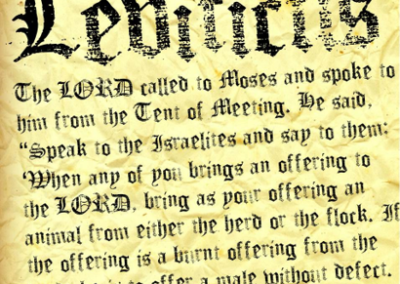 Leviticus
The LORD called to Moses and spoke to
him from the Tent of Meeting. He said,
"Speak to the Israelites and say to them:
'When any of you brings an offering to
the LORD, bring as your offering an
animal from either the herd or the flock. If
the offering is a burnt offering from the
to offer a male without defect.